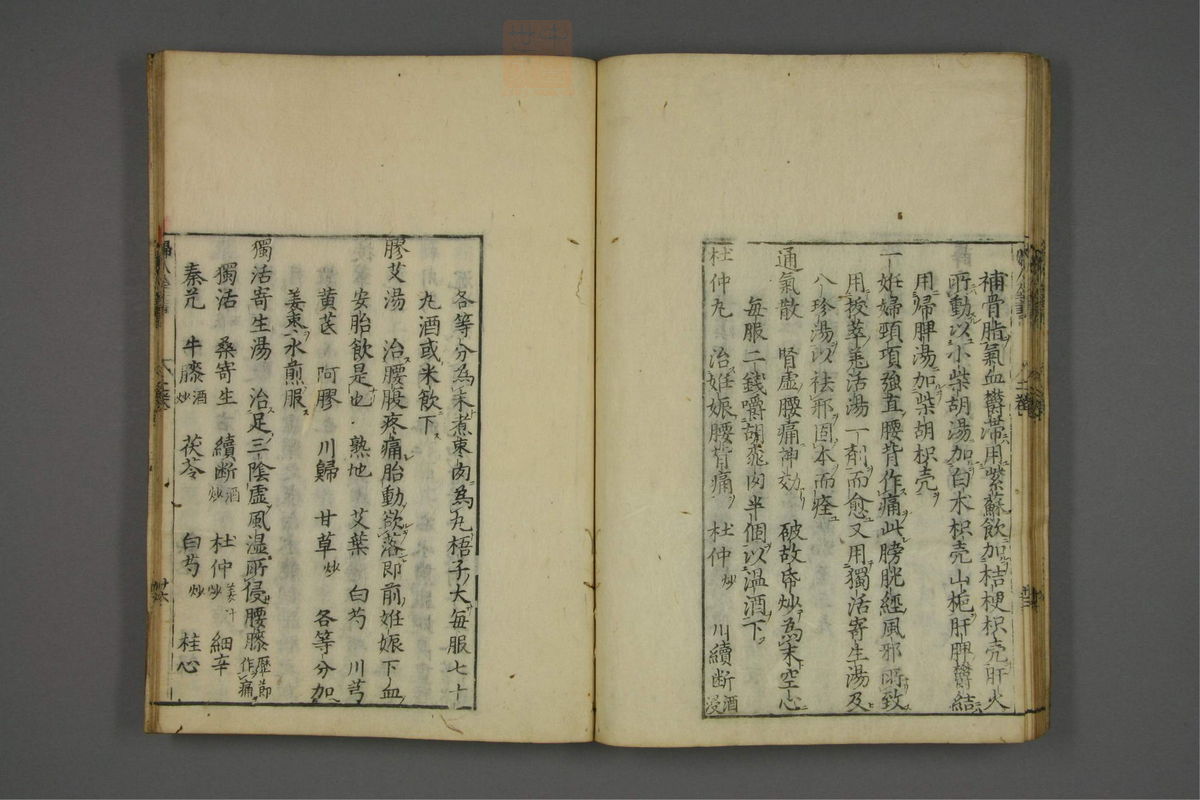 補骨脂氣血欝滞用紫蘇飲加桔梗枳壳肝火
所動以小柴胡湯加白术枳壳山梔肝脾欝結
用帰脾湯加柴胡枳壳
一妊婦頸項強直腰背作痛此膀胱經風邪所致
用拔萃羗活湯一剤而愈又用獨活寄生湯及
八珍湯以祛邪固本而痊
通氣散 腎虚腰痛神効 破故帋炒為末空心
毎服二錢嚼胡桃肉半個以温酒下
杜仲丸 治妊娠腰背痛 杜仲炒 川續断酒浸
各等分為末煮枣肉為丸梧子大毎服七十
丸酒或米飲下
膠艾湯 治腰腹疼痛胎動欲落即前妊娠下血
安胎飲是也 熟地 艾葉 白芍 川芎
黄芪 阿膠 川歸 甘草炒 各等分加
姜枣水煎服
獨活寄生湯 治足三陰虚風湿所侵腰膝歴節作痛
獨活 桑寄生 續断酒炒 杜仲姜汁炒 細辛
秦艽 牛膝酒炒 茯苓 白芍炒 桂心